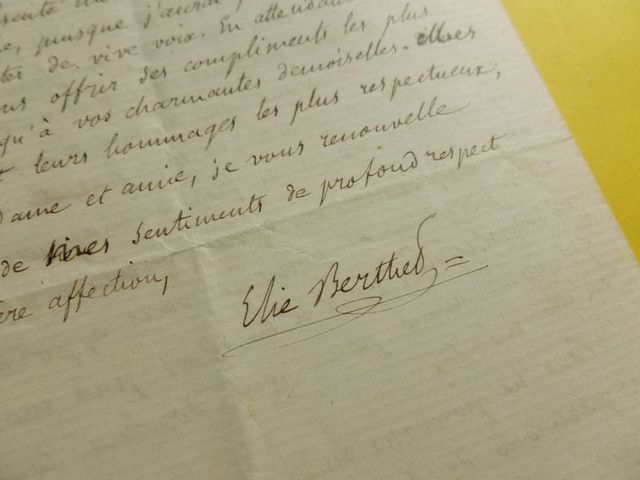 puisque j'aurai
de vive voix. En attendant
offrir ses compliments les plus
qu'à vos charmantes demoiselles. elles
leurs hommages les plus respectueux;
Dame et amie, je vous renouvelle
de mes sentiments de profond respect
affection,
Elie Berthet